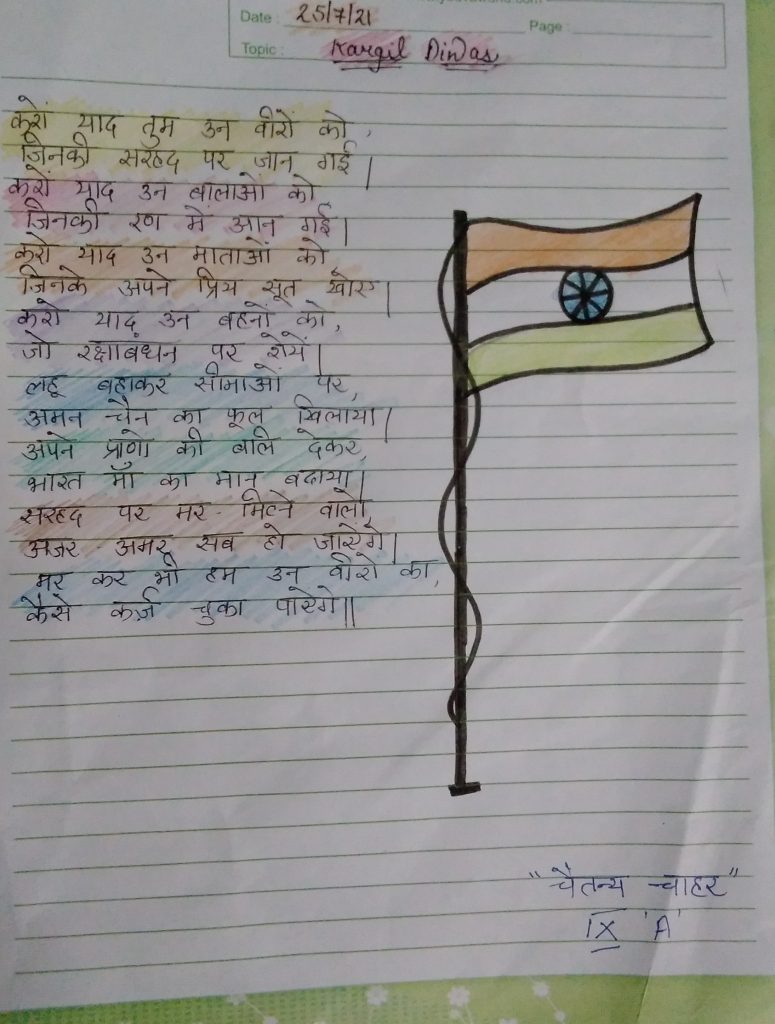 Date : 25/7/21
Page :
Topic : Kargil Diwas
करों याद तुम उन वीरो को,
जिनकी सरहद पर जान गई।
करों याद उन बालाओं को
जिनकी रण में आन गई।
करो याद उन माताओं को
जिनके अपने प्रिय सूत खोए।
करो याद उन बहनों को,
जो रक्षाबंधन पर रोयें।
लहू बहाकर सीमाओं पर,
अमन चैन का फूल खिलाया।
अपने प्राणो की बलि देकर,
भारत माँ का मान बढाया।
सरहद पर मर - मिटने वालो,
अजर - अमर सब हो जाऐंगे।
मर कर भी हम उन वीरो का,
कैसे कर्ज़ चुका पाऐगे॥
"चैतन्य चाहर"
IX 'A'